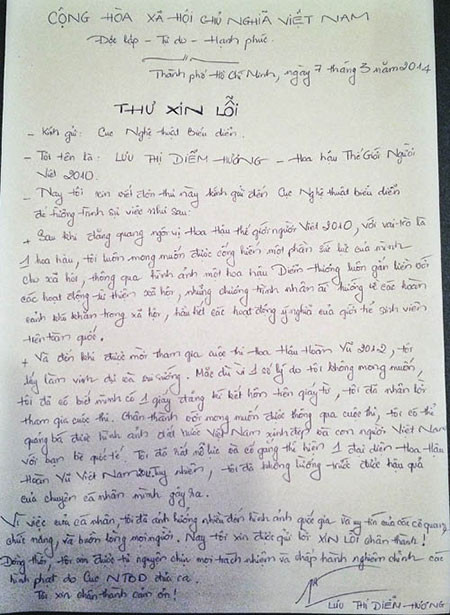 CỘNG HÒA XÃ HỘI CHỦ NGHĨA VIỆT NAM
Độc lập - Tự do - Hạnh phúc.
Thành phố Hồ Chí Minh, ngày 7 tháng 3 năm 2014
THƯ XIN LỖI
- Kính gửi: Cục Nghệ thuật biểu diễn.
- Tôi tên là: LƯU THỊ DIỄM HƯƠNG - Hoa hậu Thế Giới Người
Việt 2010.
- Nay tôi xin viết đơn thư này kính gửi đến Cục Nghệ thuật biểu diễn
để tường trình sự việc như sau:
+ Sau khi đăng quang ngôi vị Hoa Hậu thế giới người Việt 2010, với vai trò là
1 hoa hậu, tôi luôn mong muốn được cống hiến một phần sức lực của mình
cho xã hội, thông qua hình ảnh một hoa hậu Diễm Hương luôn gắn liền với
các hoạt động từ thiện xã hội, những chương trình nhân ái hướng về các hoàn
cảnh khó khăn trong xã hội, hầu hết các hoạt động ý nghĩa của giới trẻ sinh viên
trên toàn quốc.
+ Và đến khi được mời tham gia cuộc thi Hoa Hậu Hoàn Vũ 2012, tôi
lấy làm vinh dự và vui sướng. Mặc dù vì 1 số lý do tôi không mong muốn,
tôi đã có biết mình có 1 giấy đăng kí kết hôn trên giấy tờ, tôi đã nhận lời
tham gia cuộc thi. Chân thành với mong muốn được thông qua cuộc thi, tôi có thể
quảng bá được hình ảnh đất nước Việt Nam xinh đẹp và con người Việt Nam
với bạn bè quốc tế. Tôi đã hết nỗ lực và cố gắng thể hiện 1 đại diện Hoa Hậu
Hoàn Vũ Việt Nam 2012. Tuy nhiên, tôi đã không lường trước được hậu quả
của chuyện cá nhân mình gây ra.
Vì việc của cá nhân, tôi đã ảnh hưởng nhiều đến hình ảnh quốc gia và uy tín của các cơ quan
chức năng, và buồn lòng mọi người. Nay tôi xin được gửi lời XIN LỖI chân thành!
Đồng thời, tôi xin được tự nguyện chịu mọi trách nhiệm và chấp hành nghiêm chỉnh các
hình phạt do Cục NTBD đưa ra.
Tôi xin chân thành cảm ơn!
LƯU THỊ DIỄM HƯƠNG